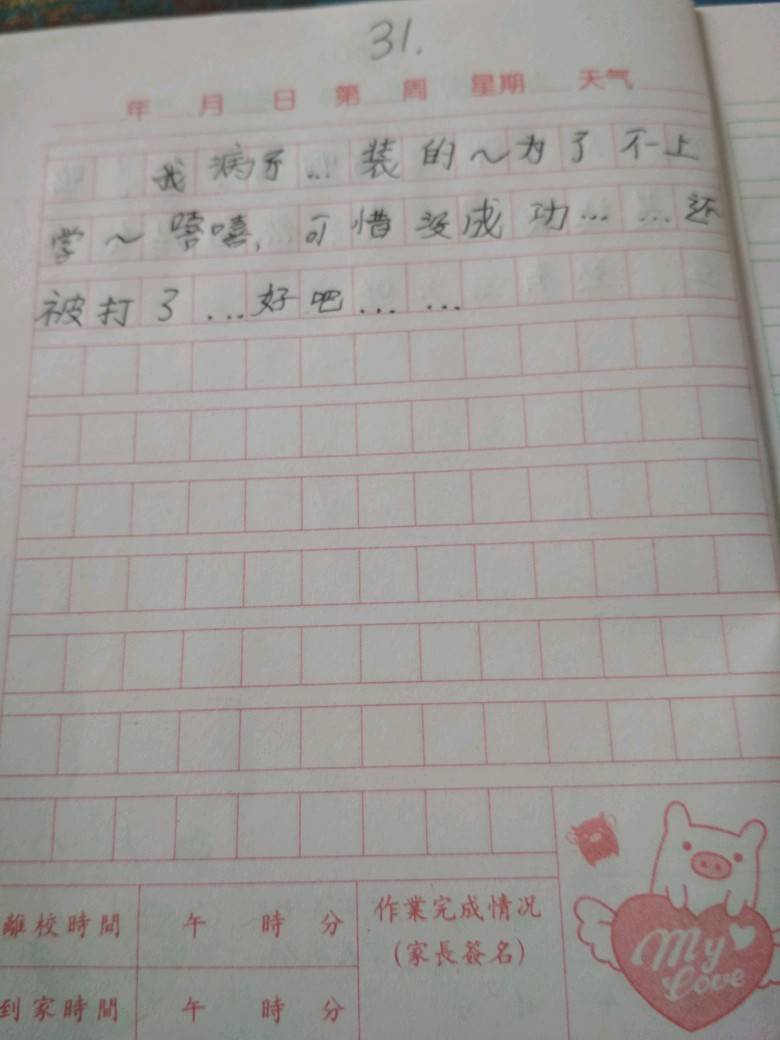 31.
年 月 日 第 周 星期 天气
我病了... 装的～为了不上
学～嘻嘻, 可惜没成功... ...还
被打了...好吧... ...
離校時間 午 時 分
作業完成情况
(家長簽名)
到家時間 午 時 分
My
Love